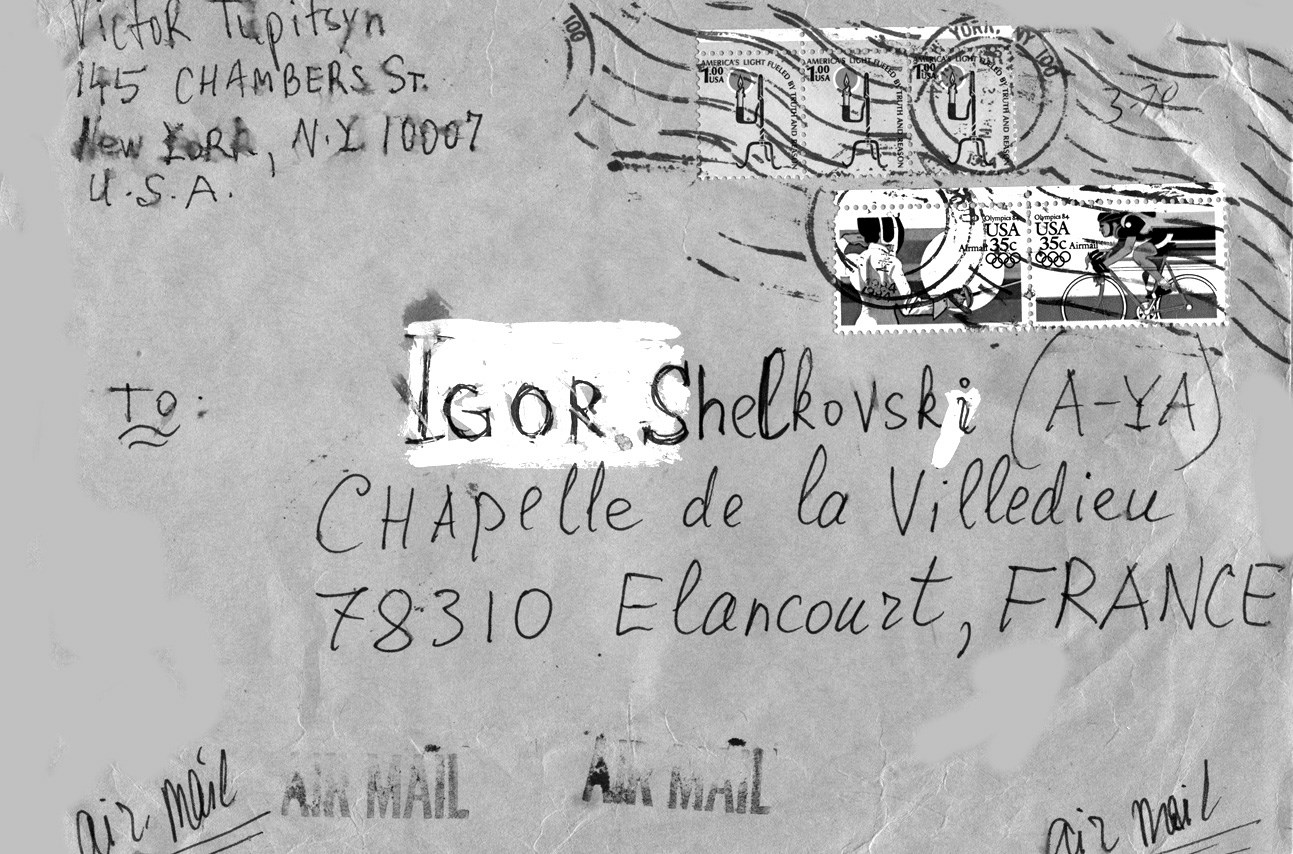 Victor Tupitsyn
145 CHAMBERS St.
New York, N.Y 10007
U.S.A.
100
YORK, NY 100
AMERICA'S LIGHT FUELED BY TRUTH AND REASON
1.00
USA
AMERICA'S LIGHT FUELED BY TRUTH AND REASON
1.00
USA
AMERICA'S LIGHT FUELED BY TRUTH AND REASON
1.00
USA
Olympics 84
USA
35c
Airmail
Olympics 84
USA
35c Airmail
To:
IGOR Shelkovski (A-YA)
CHApelle de la Villedieu
78310 Elancourt, FRANCE
AIR MAIL AIR MAIL
air mail
air mail